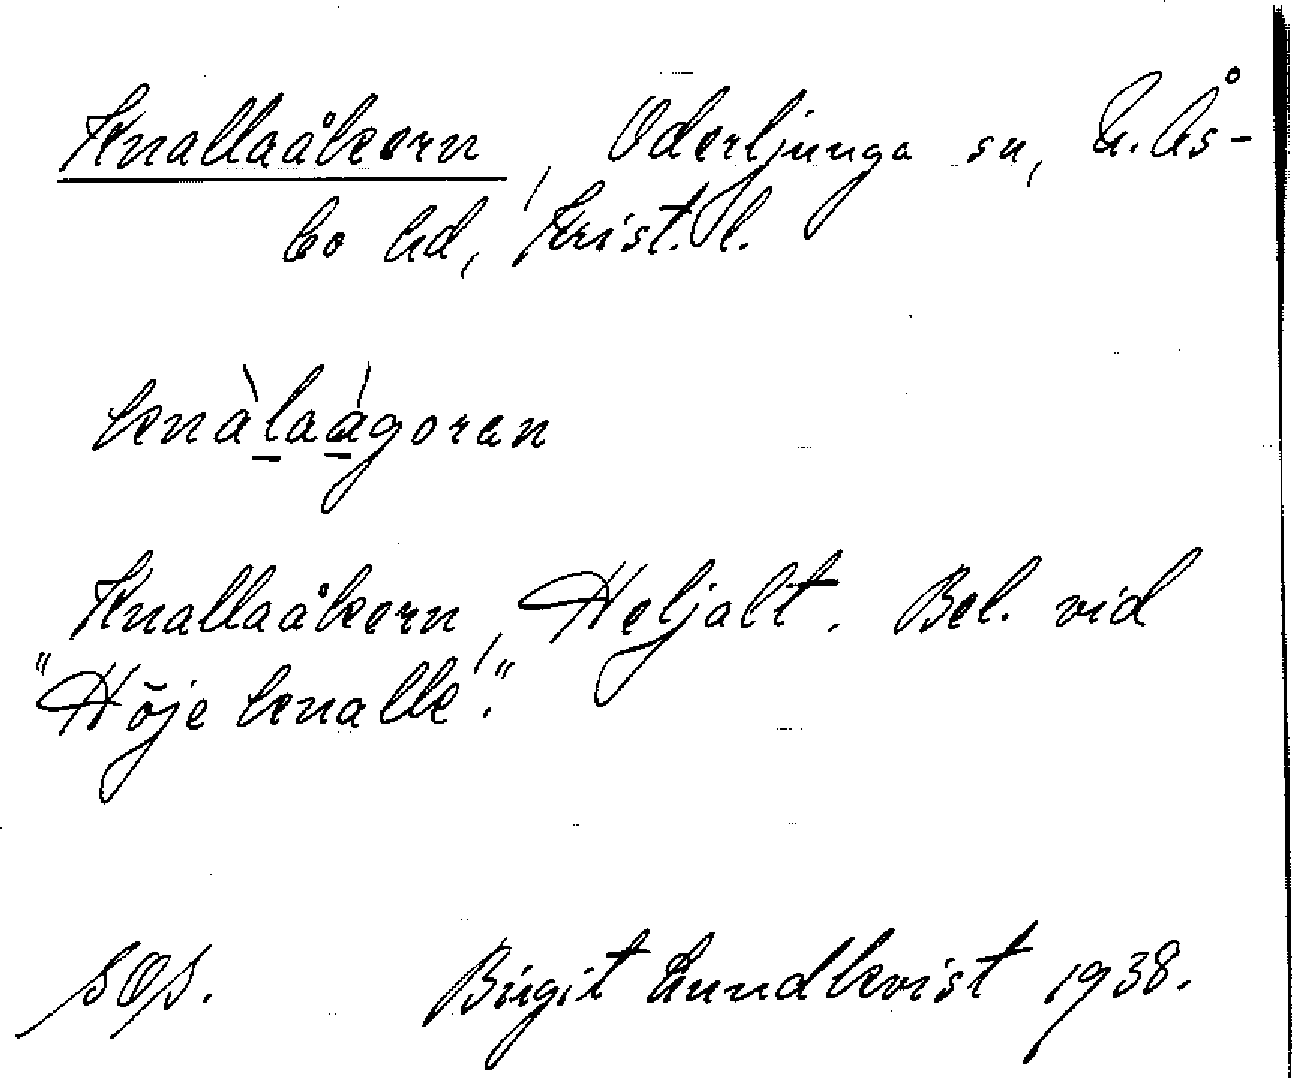 Knallaåkern, Oderljunga sn, N. Ås-
bo hd, Krist. l.
knàlaágoran
Knallaåkern, Heljalt. Bel. vid
"Höje knalle".
sOs. Birgit Lundkvist 1938.